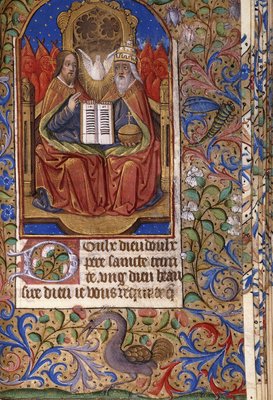 Doulx dieu doulx
pere saincte trini
te ung dieu beau
sire dieu ie vous